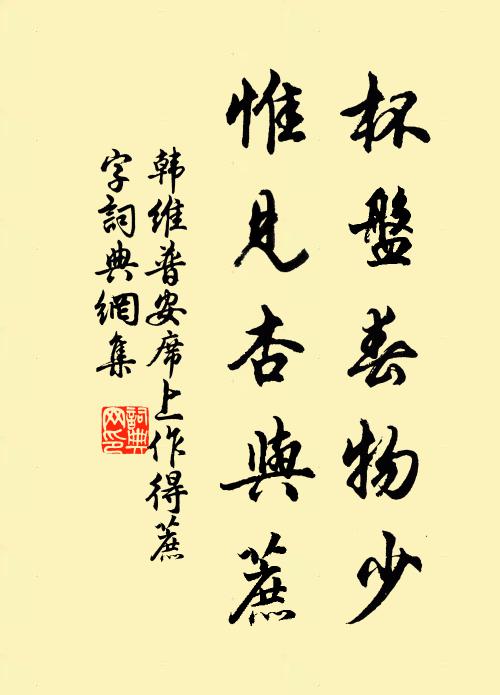 杯盤春物少
惟見杏與蔗
韩維普安席上作得蔗
字詞典網集
詞典
网印